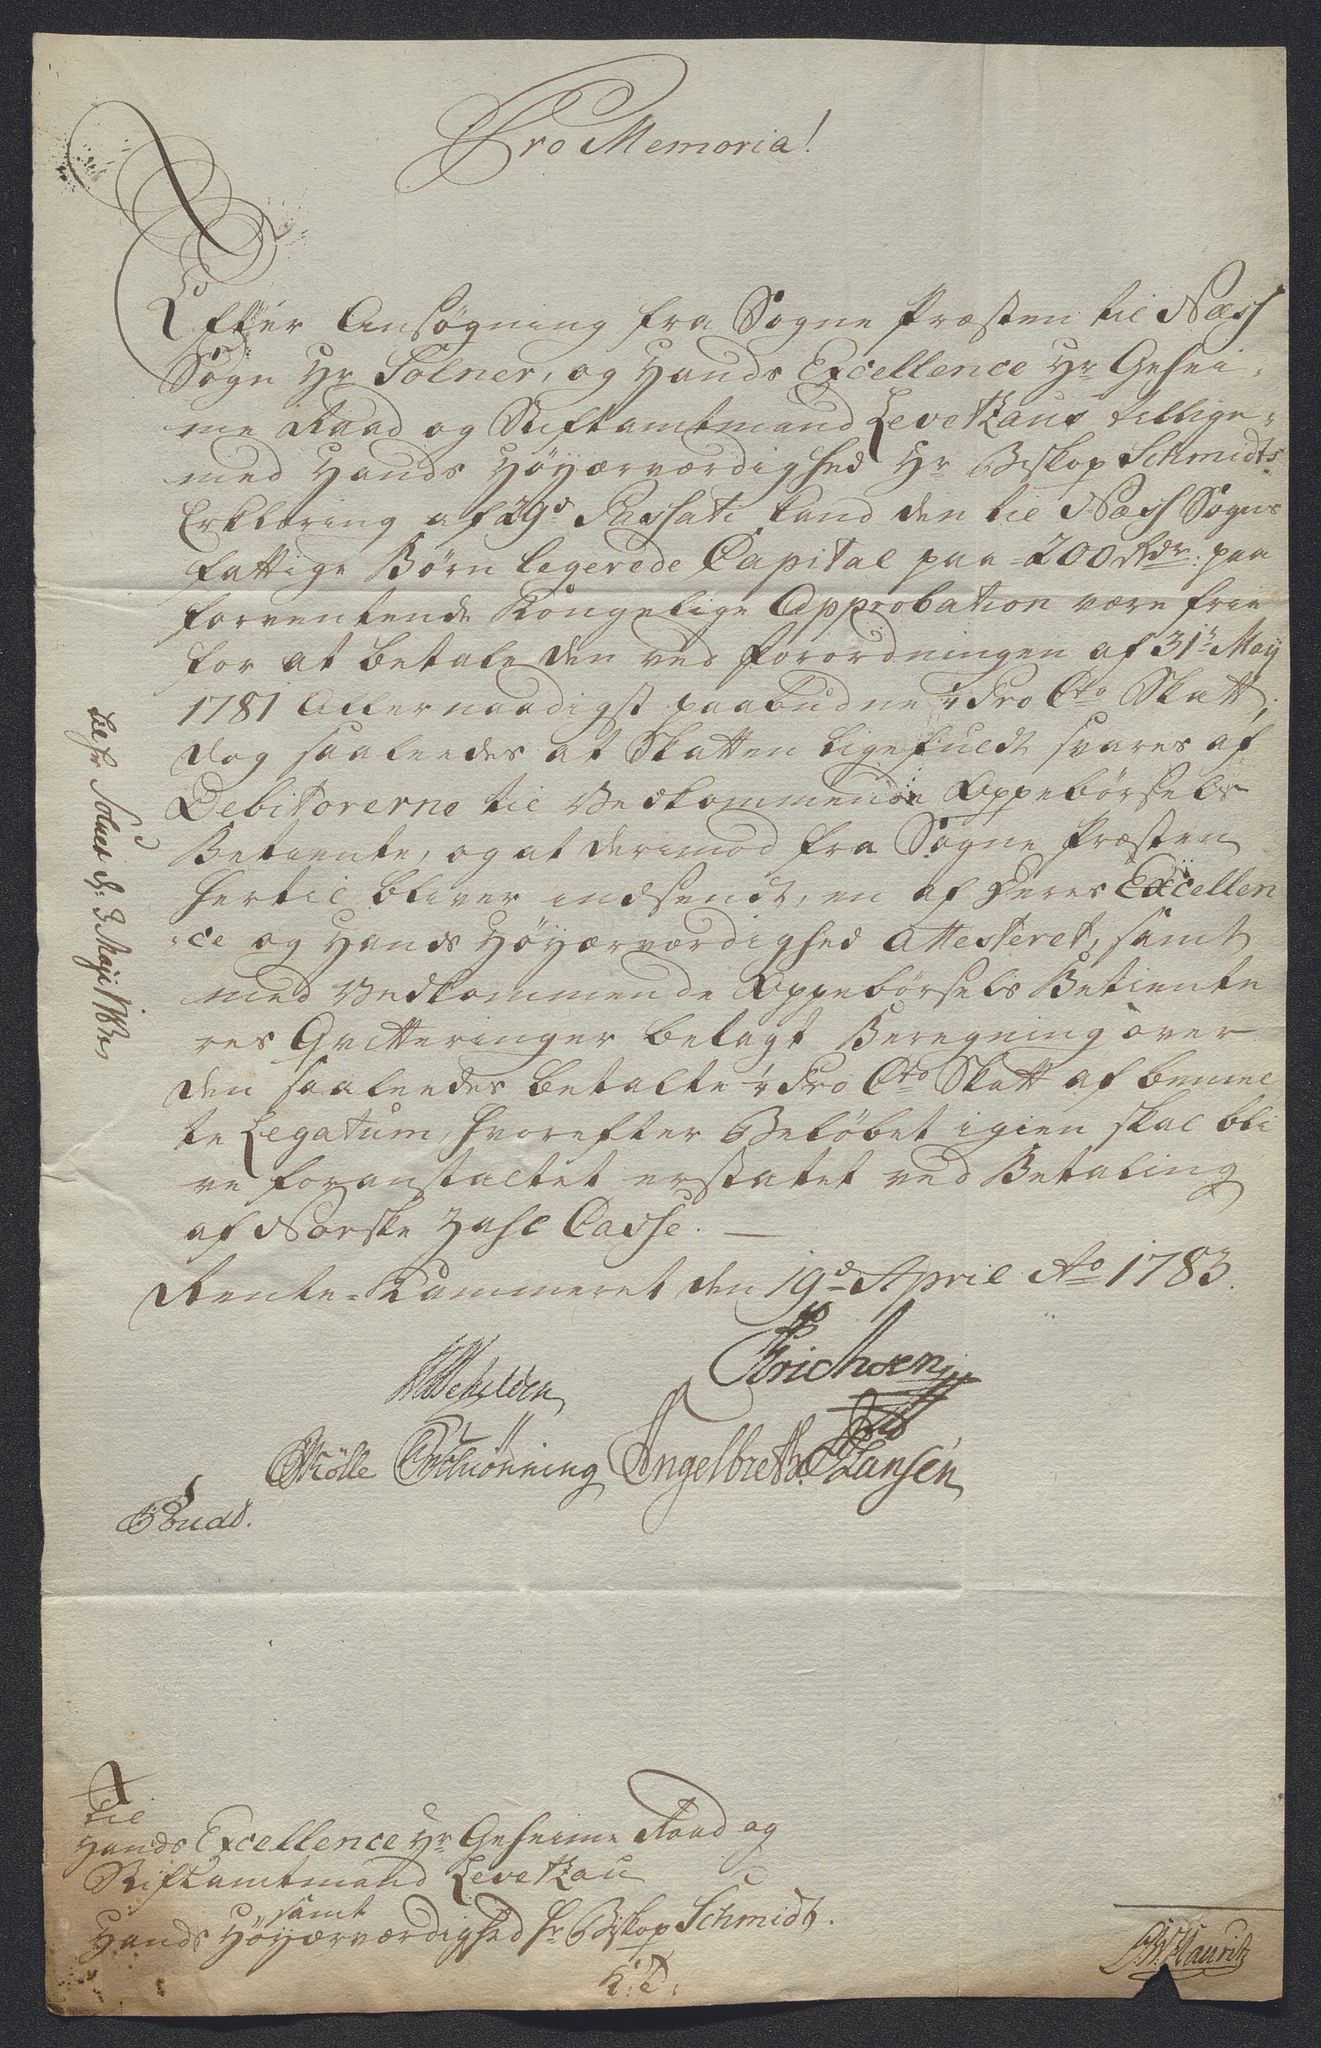 Pro Memoria!
Efter Ansøgning fra Sogne Præsten til Næss
Sogn Hr Sølner, og Hands Excellence Hr Gehei-
me Raad og Stiftamtmand Levetzaus tillige-
med Hands Höyærværdighed Hr Biskop Schmidts
Erklæring af 29d Passati kand den til Næss Sogns
fattige Børn legerede Capital paa 200 Rdr. paa
forventende Kongelige Approbation være frie
for at betale den ved Forordningen af 31te May
1781 Allernaadigst paabudne ¼ Pro Cto Skatt,
dog saaleedes at Skatten ligefuldt svares af
Debitorerne til Vedkommende Oppebørsels
Betiente, og at derimod fra Sogne Præsten
hertil bliver indsendt, en af Deres Excellen
-ce og Hands Höyærværdighed attesteret, samt
med Vedkommende Oppebørsels Betiente
res Qvitteringer belagt Beregning over
den saaleedes betalte ¼ Pro Cto Skatt af bemel
te Legatum, hvorefter Beløbet igien skal bli
ve foranstaltet erstatet ved Betaling
af Norske Zahl Casse.
Rente-Kammeret den 19d April Ao 1783.
Erichsen
Mølle Schiønning Engelbreth. Hansén
til
Hands Excellence Hr Geheime Raad og
Stiftamtmand Levetzau
samt
Hands Höyærværdighed Hr Biskop Schmidt.
Hauritz